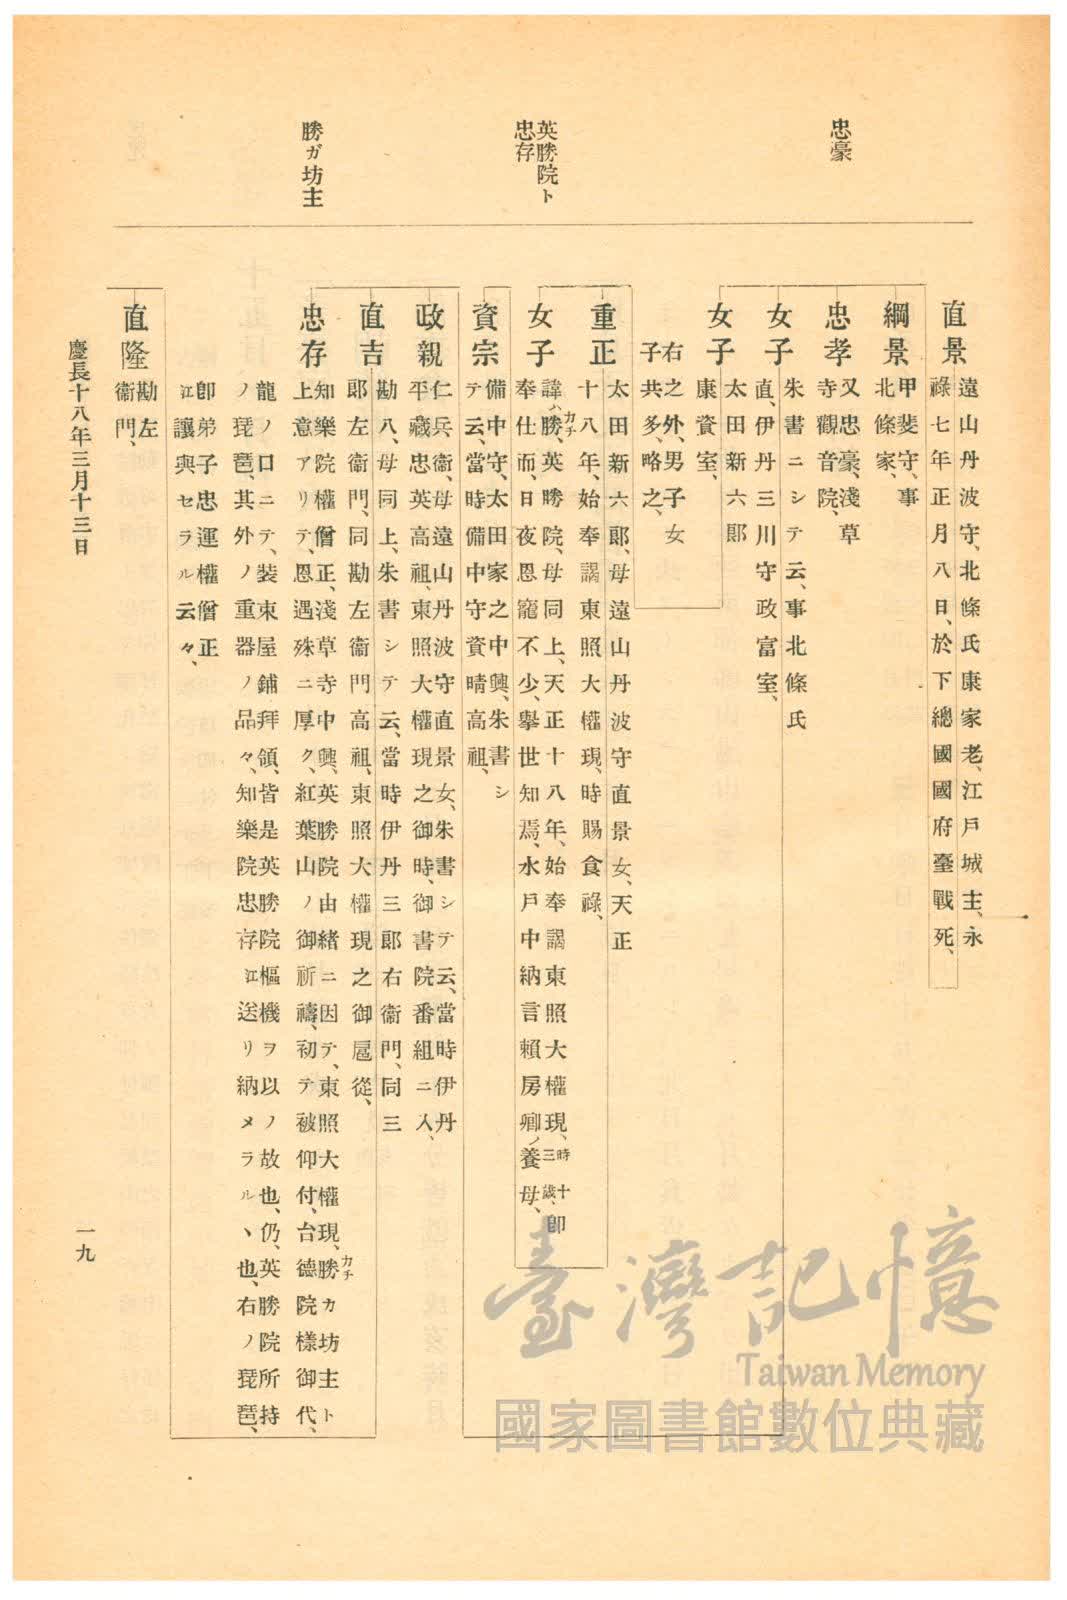 忠豪
英勝院ト
忠存
勝ガ坊主
直景
遠山丹波守、北條氏康家老、江戶城主、永
祿七年正月八日、於下總國國府臺戰死、
綱景
甲斐守、事
北條家、
忠孝
又忠豪、淺草
寺觀音院、
女子
朱書ニシテ云、事北條氏
直、伊丹三川守政富室、
女子
太田新六郞
康資室、
右之外、男子女
子共多、略之、
重正
太田新六郞、母遠山丹波守直景女、天正
十八年、始奉謁東照大權現、時賜食祿、
女子
諱ハ勝、カチ英勝院、母同上、天正十八年、始奉謁東照大權現、時十三歲、卽
奉仕而、日夜恩寵不少、擧世知焉、水戶中納言賴房卿ノ養母、
資宗
備中守、太田家之中興、朱書シ
テ云、當時備中守資晴高祖、
政親
仁兵衞、母遠山丹波守直景女、朱書シテ云、當時伊丹
平藏忠英高祖、東照大權現之御時、御書院番組ニ入、
直吉
勘八、母同上、朱書シテ云、當時伊丹三郞右衞門、同三
郞左衞門、同勘左衞門高祖、東照大權現之御扈從、
忠存
知樂院權僧正、淺草寺中興、英勝院由緖ニ因テ、東照大權現、勝カチカ坊主ト
上意アリテ、恩遇殊ニ厚ク、紅葉山ノ御祈禱、初テ被仰付、台德院樣御代、
龍ノ口ニテ、裝束屋鋪拜領、皆是英勝院樞機ヲ以ノ故也、仍、英勝院所持
ノ琵琶、其外ノ重器ノ品々、知樂院忠存江送リ納メラルヽ也、右ノ琵琶、
卽弟子忠運權僧正
江讓與セラル云々、
直隆
勘左
衞門、
慶長十八年三月十三日
一九
臺灣記憶
Taiwan Memory
國家圖書館數位典藏